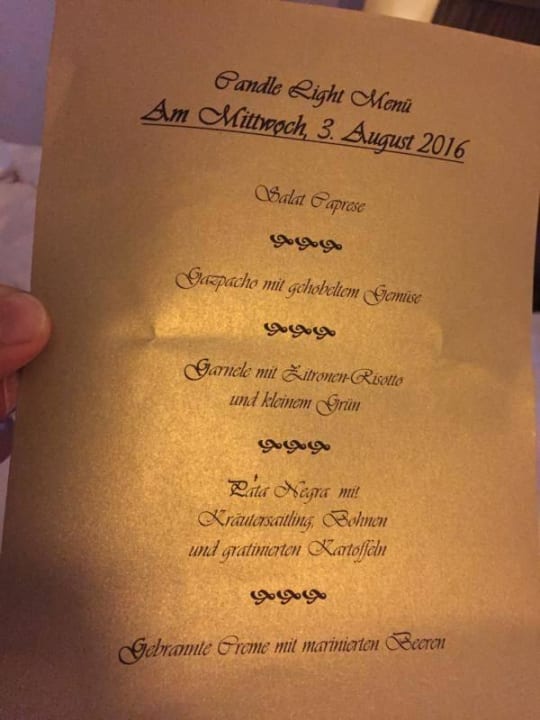 Candle Light Menü
Am Mittwoch, 3. August 2016
Salat Caprese
Gazpacho mit gehobeltem Gemüse
Garnele mit Zitronen-Risotto
und kleinem Grün
Páta Negra mit
Kräutersaitling, Bohnen
und gratinierten Kartoffeln
Gebrannte Creme mit marinierten Beeren